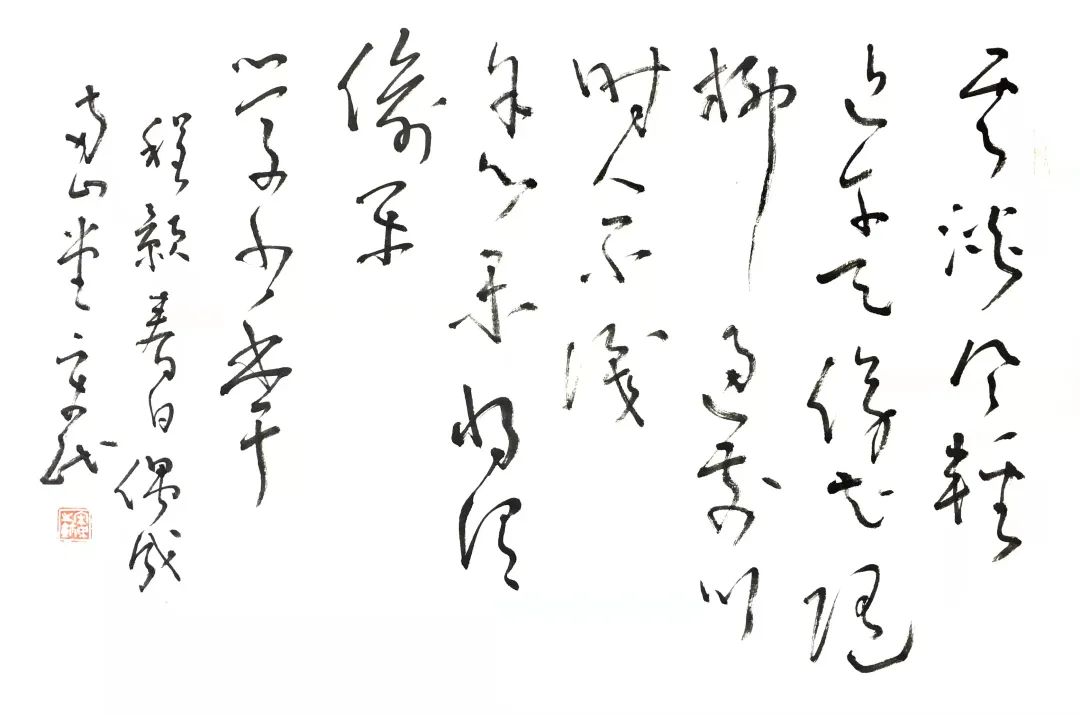 云淡风轻
近午天傍花随
柳过前川
时人不识
余心乐将谓
偷闲
学少年
程颢春日偶成
山堂